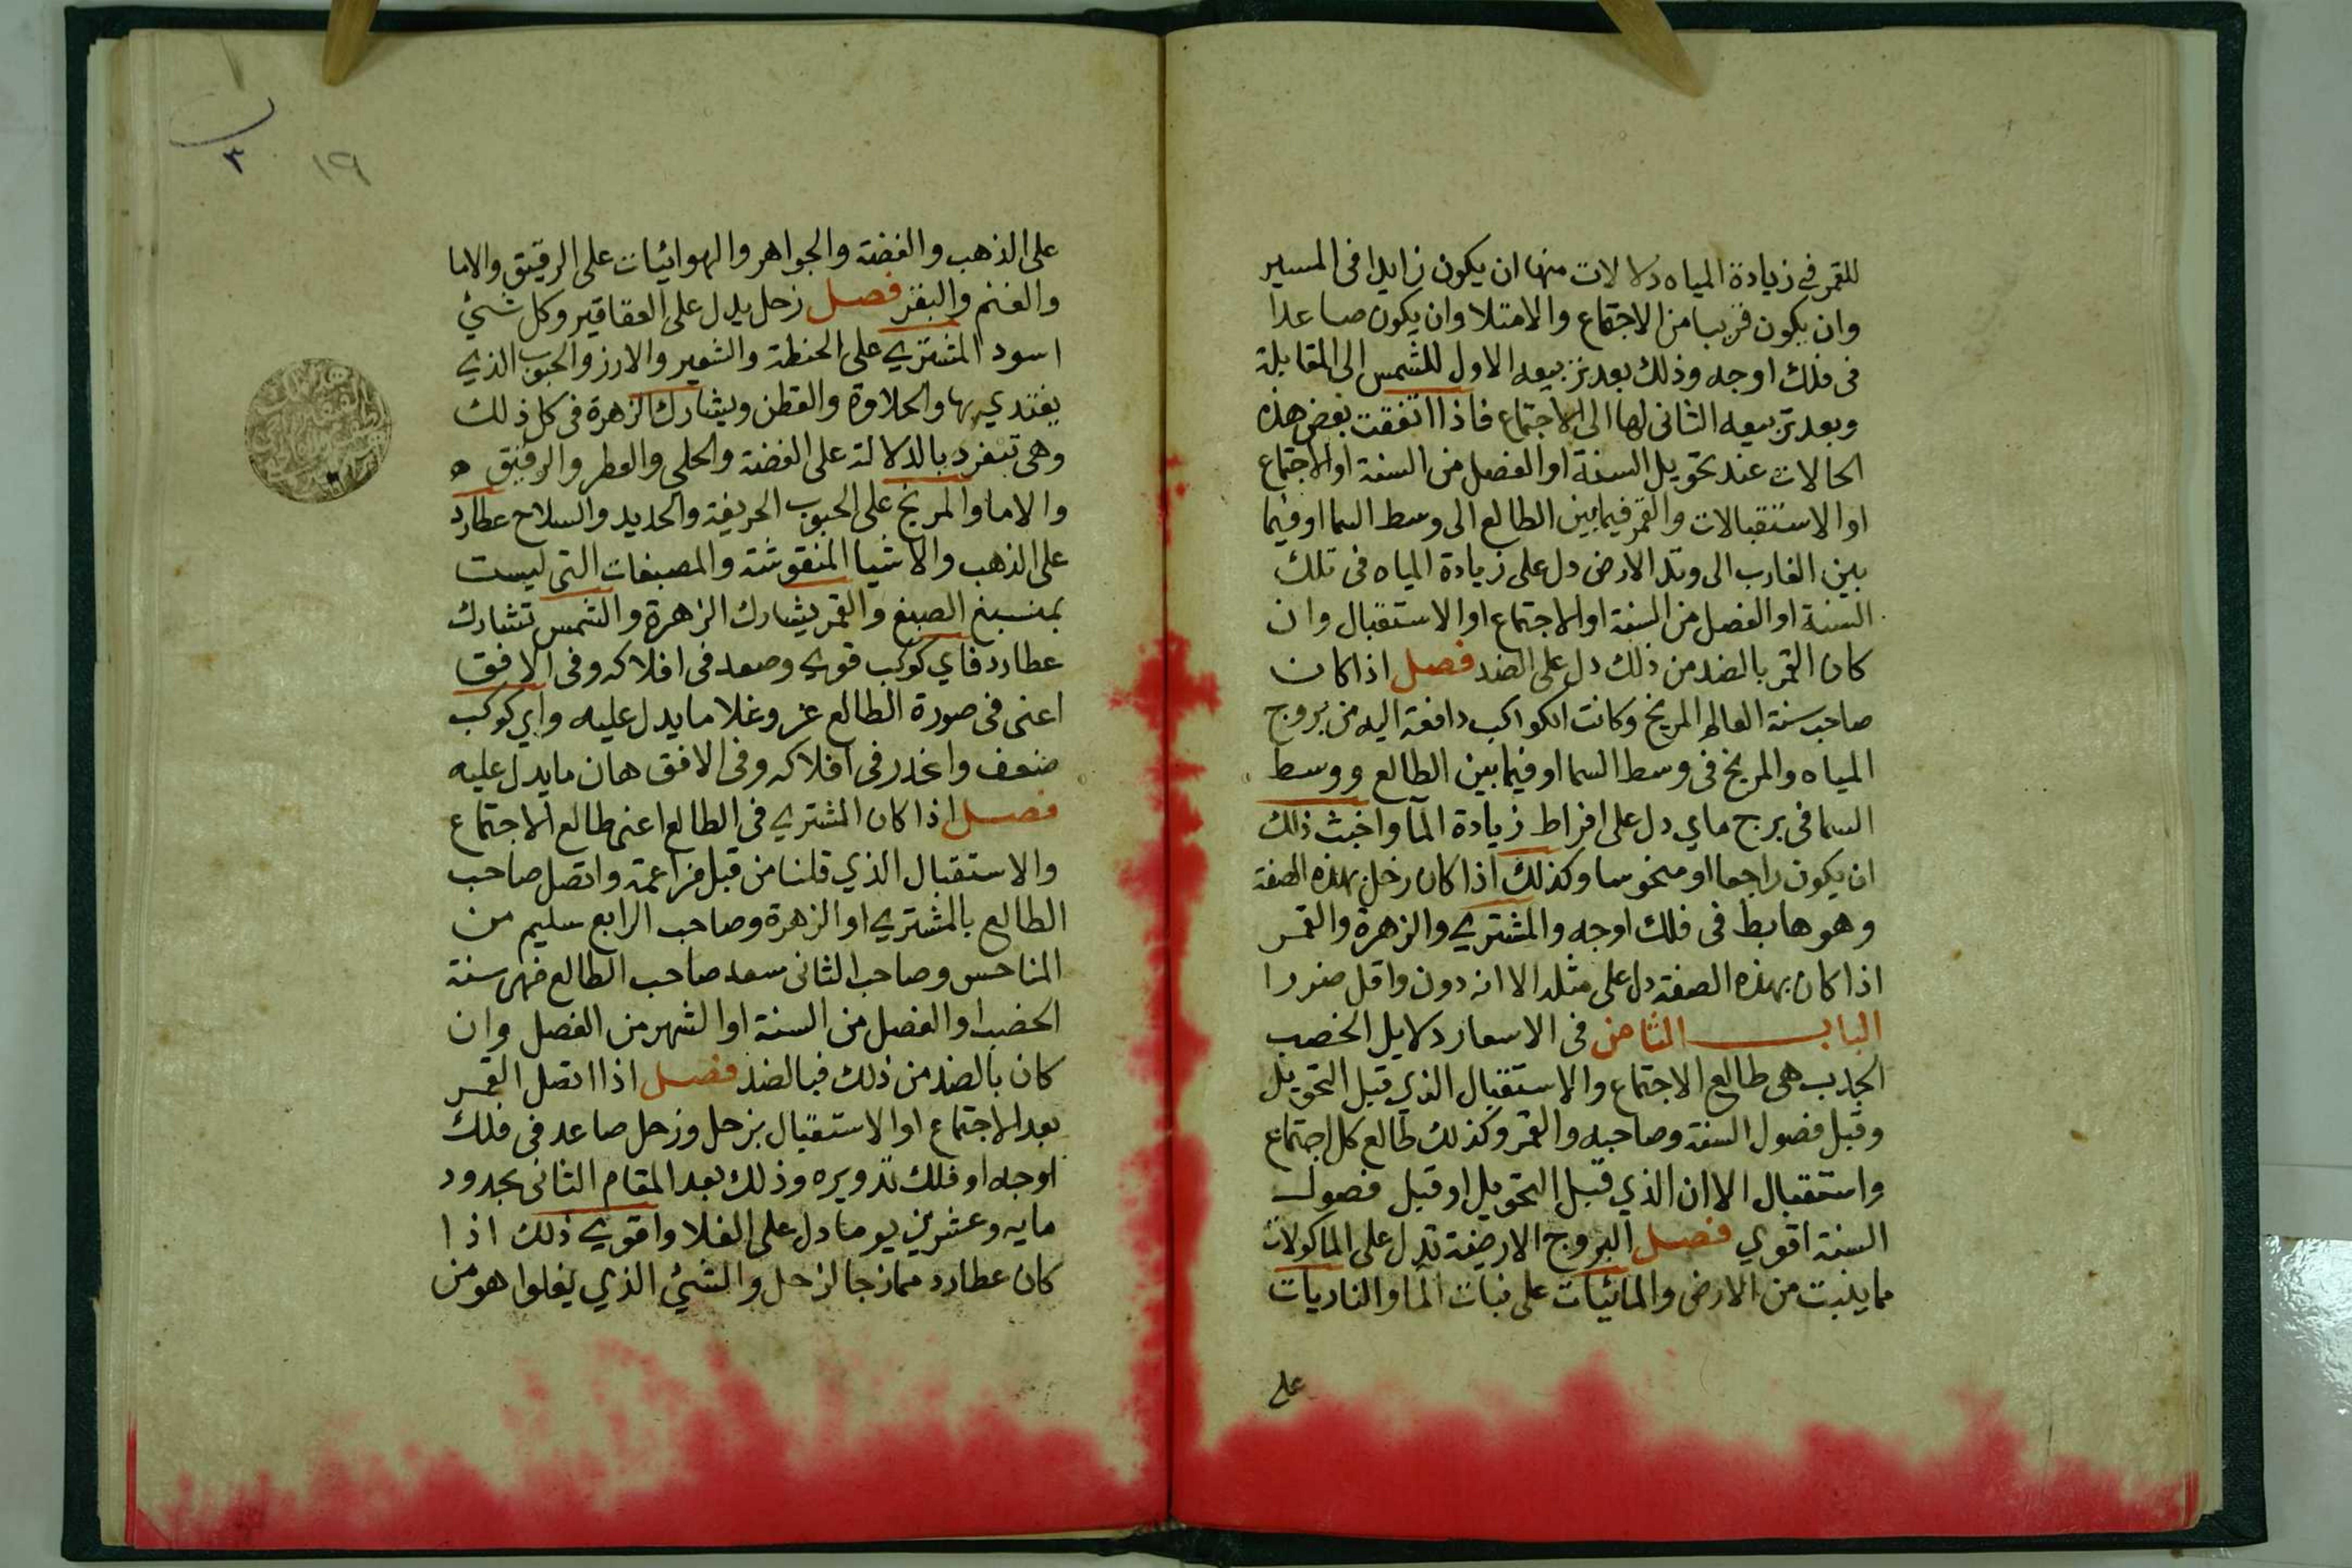 للقمر في زيادة المياه دلالات منها ان يكون زايدا فى المسير
وان يكون قريبا من الاجتماع والامتلا وان يكون صاعدا
فى فلك اوجه وذلك بعد تربيعه الاول للشمس الى المقابلة
وبعد تربيعه الثانى لها الى الاجتماع فاذا اتفقت بعض هذه
الحالات عند تحويل السنة او الفصل من السنة او الاجتماع
او الاستقبالات والقمر فيما بين الطالع الى وسط السما او فيما
بين الغارب الى وتد الارض دل على زيادة المياه فى تلك
السنة او الفصل من السنة او الاجتماع او الاستقبال وان
كان القمر بالضد من ذلك دل على الضد فصل اذا كان
صاحب سنة العالم المريخ وكانت الكواكب دافعة اليه من بروج
المياه والمريخ فى وسط السما او فيما بين الطالع ووسط
السما فى برج ماي دل على افراط زيادة الما واخبث ذلك
ان يكون راجعا او منحوسا وكذلك اذا كان زحل بهذه الصفة
وهو هابط فى فلك اوجه والمشتري والزهرة والقمر
اذا كان بهذه الصفة دل على مثله الا انه دون واقل ضررا
الباب الثامن فى الاسعار دلايل الخصب
الجدب هى طالع الاجتماع والاستقبال الذي قبل التحويل
وقبل فصول السنة وصاحبه والقمر وكذلك طالع كل اجتماع
واستقبال الا ان الذي قبل التحويل او قبل فصول
السنة اقوي فصل البروج الارضية تدل على الماكولات
مما ينبت من الارض والمائيات على نبات الما والناريات
على
١٩
٣
على الذهب والفضة والجواهر والهوائيات على الرقيق والاما
والغنم والبقر فصل زحل يدل على العقاقير وكل شيئ
اسود المشتري على الحنطة والشعير والارز والحبوب الذي
يغتدي بها والحلاوة والقطن ويشارك الزهرة فى كل ذلك
وهى تنفرد بالدلالة على الفضة والحلي والعطر والرقيق
والاما والمريخ على الحبوب الحريفة والحديد والسلاح عطارد
على الذهب والاشيا المنقوشة والمصبغات التى ليست
الصبغ والقمر يشارك الزهرة والشمس تشارك
عطارد فاي كوكب قوي وصعد فى افلاكه وفى الافق
اعنى فى صورة الطالع عز وغلا ما يدل عليه واي كوكب
ضعف وانحدر فى افلاكه وفى الافق هان ما يدل عليه
فصل اذا كان المشتري فى الطالع اعنى طالع الاجتماع
والاستقبال الذي قلنا من قبل مزاعمة واتصل صاحب
الطالع بالمشتري او الزهرة وصاحب الرابع سليم من
المناحس وصاحب الثانى سعد صاحب الطالع فهى سنة
الخضب او الفصل من السنة او الشهر من الفصل وان
كان بالضد من ذلك فبالضد فصل اذا اتصل القمر
بعد الاجتماع او الاستقبال بزحل وزحل صاعد فى فلك
اوجه او فلك تدويره وذلك بعد المقام الثانى بحدود
مايه وعشرين يوما دل على الغلا واقوي ذلك اذا
كان عطارد ممازجا لزحل والشيئ الذي يغلوا هو من